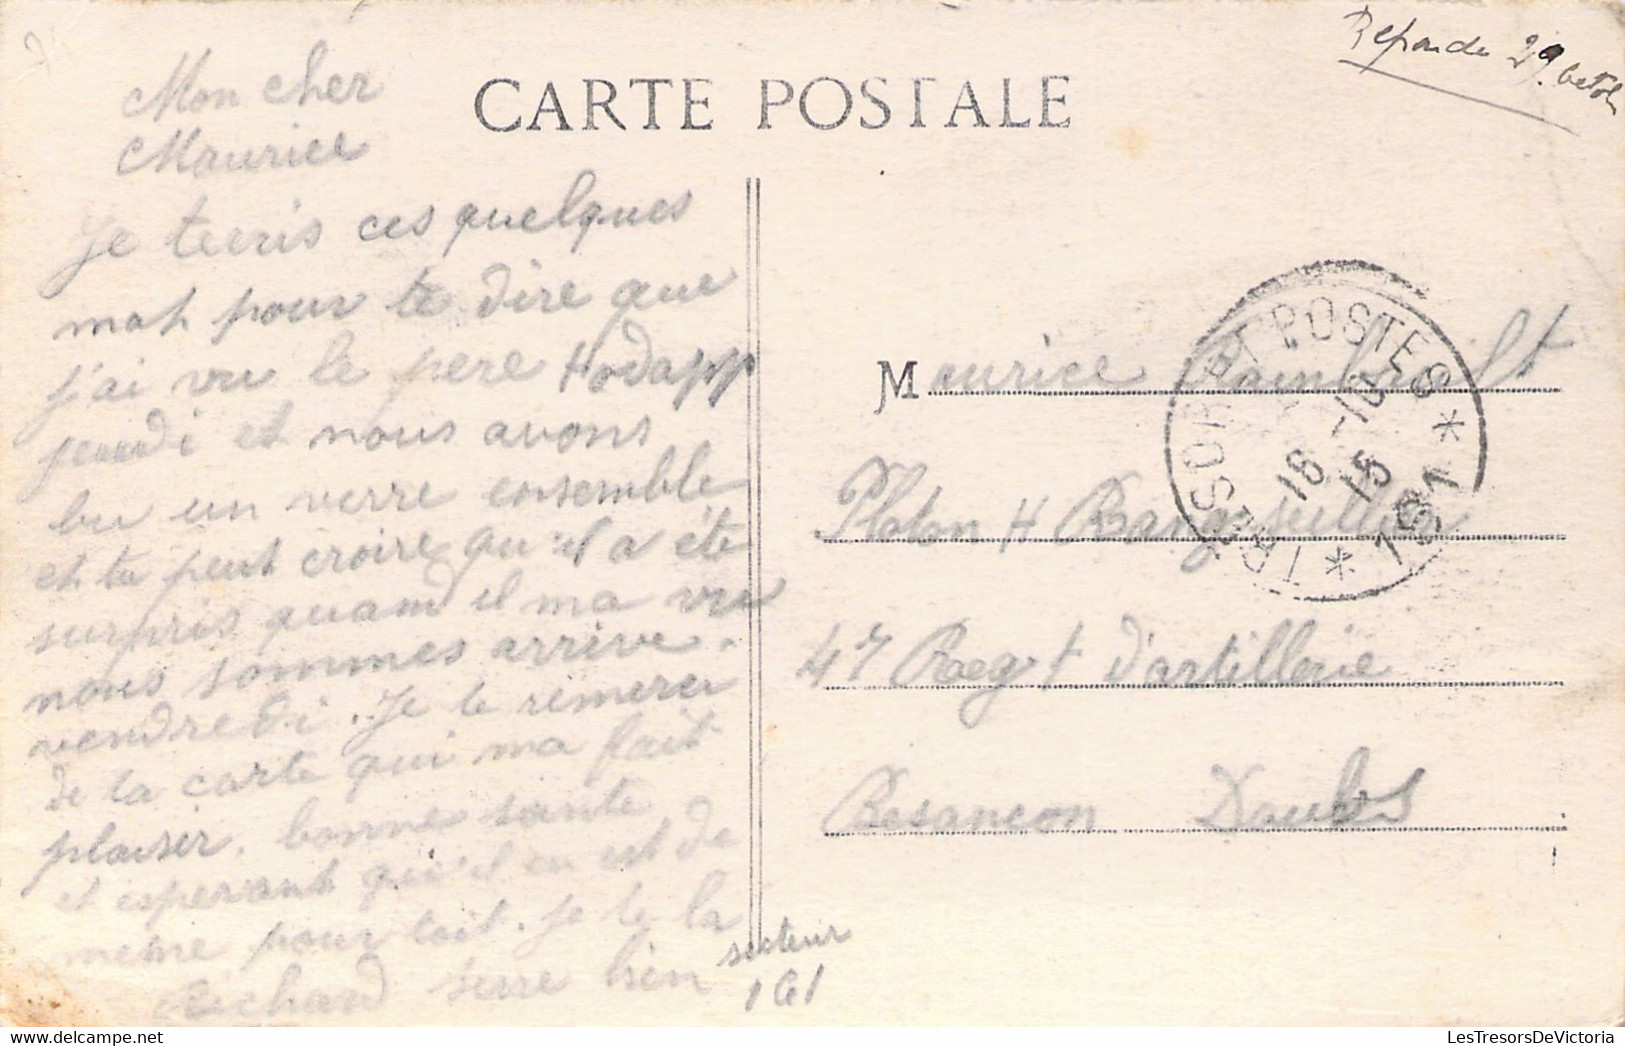 CARTE POSTALE
29
Mon cher
Maurice
Je tecris ces quelques
mot pour te dire que
j'ai vu le pere Hodapp
jeuudi et nous avons
bu un verre ensemble
et tu peut croire qu'il a été
surpris quand il ma vu
nous sommes arrive.
vendredi. Je te remerci
de la carte qui ma fait
plaiser. bonne sante
et esperant qu'il en est de
meme pour toit. Je te la
serre bien
Richard
secteur
161
Maurice
Platon H
47 Regt d'artillerie
Besancon Doubs
TRESOR ET POSTES
16 -10
15
* 161 *
LesTresorsDeVictoria.com